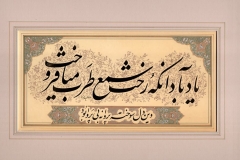 یاد باد آنکه رخت شمع طرب می‌افروخت
وین دل سوخته پروانه ناپروا بود